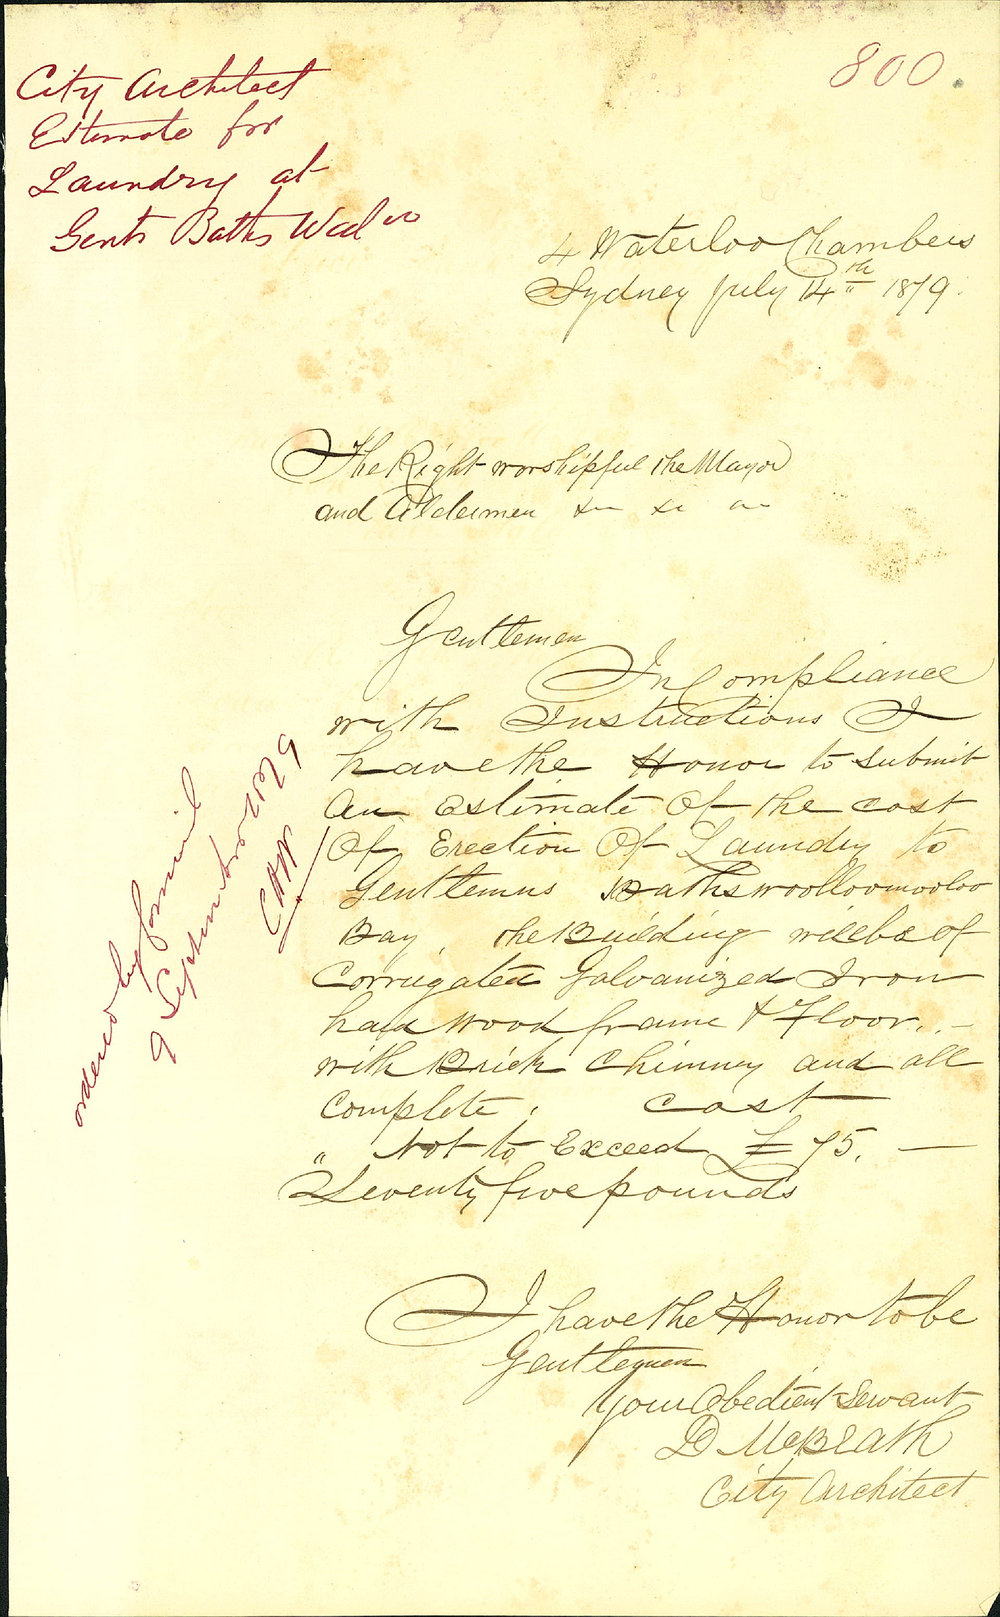 800.
City Architect
Estimate for
Laundry at
Gents Baths Wool oo
4 Waterloo Chambers
Sydney July 14th 1879.
The Right worshipful the Mayor
and Aldermen &c &c &c
Gentlemen
In Compliance
with Instructions I
have the Honor to submit
An Estimate Of the cost
Of Erection Of Laundry to
Gentlemens Baths woolloomooloo
Bay, the Building will be of
Corrugated Galvanized Iron
hard wood frame & Floor..—
with Brick Chimney and all
Complete. cost
" Not to Exceed £75.—
Seventy five pounds
I have the Honor to be
Gentlemen
Your Obedient Servant
D McBeath
City Architect
ordered by
9 September 1879